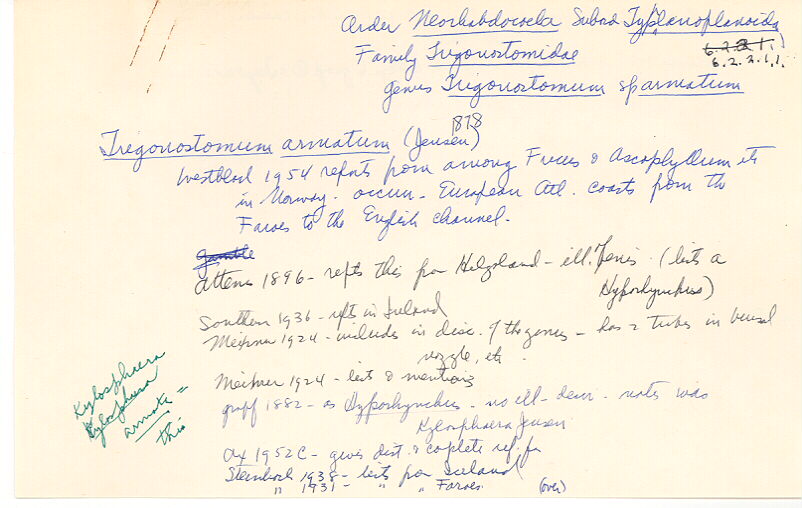 Order Neorhabdocoela Subord Typhlanoplanoida
Family Trigonostomidae
6.2.2.1.1.
genus Trigonostomum sp armatum
Trigonostomum armatum (Jensen) 1878
Westblad 1954 repts from among Fucus & Ascophyllum etc
in Norway. occurr - European Atl. coasts from the
Faroes to the English channel.
Gamble
Attems 1896 - repts this from Helgoland - ill. Penis. (lists a
Hyporhynchus)
Southern 1936 - rpts in Ireland
Meixner 1924 - includes in disc. of the genus - has 2 tubes in bursal
nozzle, etc.
Meixner 1924 - lists & mentions
Graff 1882 - as Hyporhynchus - no ill - descr. - notes was
Kylosphaera Jensen
Ax 1952C - gives dist. & complete ref. for
Steinbock 1938 - lists for Iceland
" 1931 - " " Faroes.
(over)
Kylosphaera
Kylosphaera
armata =
this